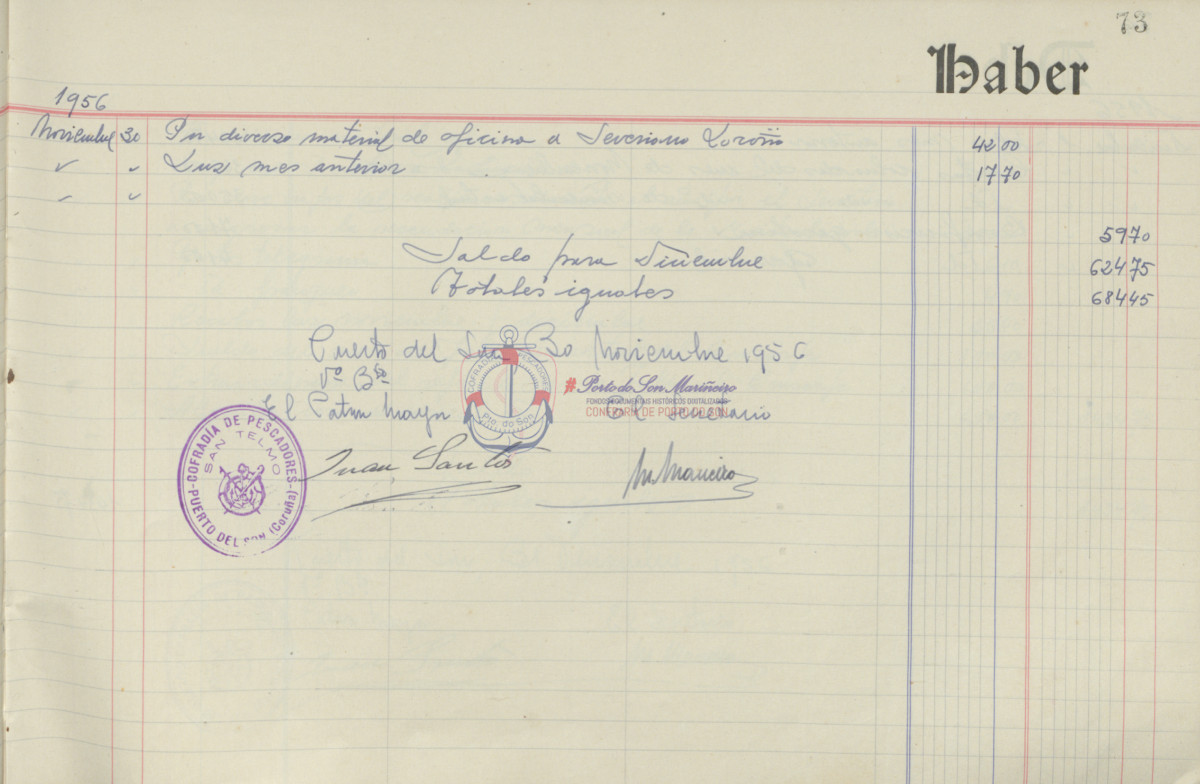 73
Haber
1956
Noviembre 30 Por diverso material de oficina a Severiano 42 00
✓ " Luz mes anterior 17 70
" "
59 70
Saldo para Diciembre 624 75
Totales iguales 684 45
Puerto del Son 30 Noviembre 1956
Vº Bº
El Patron Mayor El Secretario
Juan Santos M. Maneiro
COFRADIA DE PESCADORES
SAN TELMO
PUERTO DEL SON (Coruña)
COFRADÍA PESCADORES
Pto. do Son
#Porto do Son Mariñeiro
FONDOS DOCUMENTAIS HISTÓRICOS DIGITALIZADOS
CONFRARÍA DE PORTO DO SON